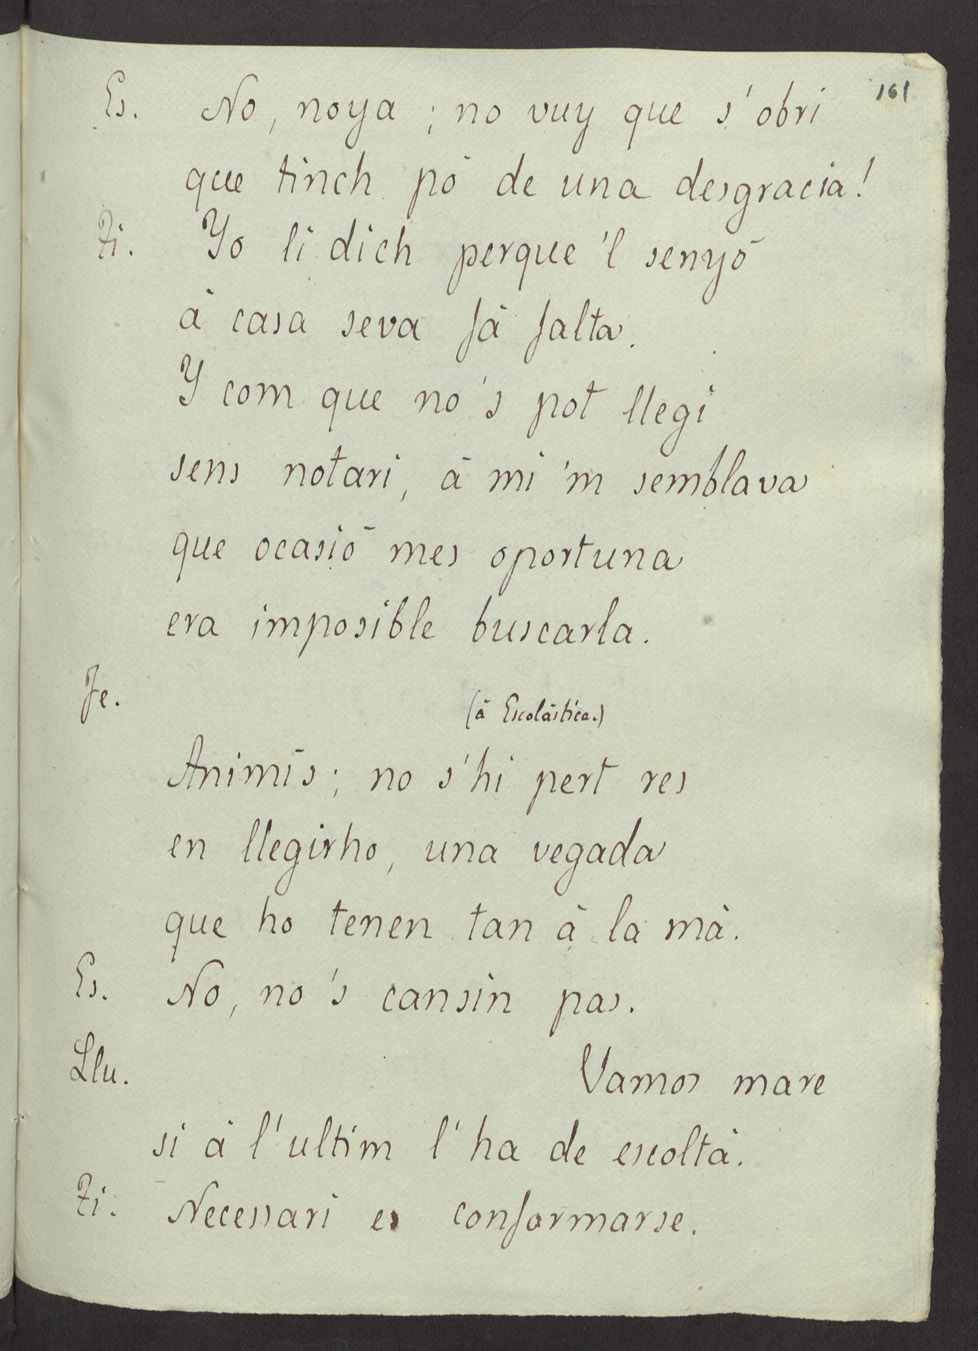 161
Es. No, noya; no vuy que s'obri
que tinch pó de una desgracia!
Ti. Yo li dich perque 'l senyó
á casa seva fá falta.
Y com que no 's pot llegi
sens notari, á mi 'm semblava
que ocasió mes oportuna
era imposible buscarla.
Je.
(á Escolástica.)
Animis; no s'hi pert res
en llegirho, una vegada
que ho tenen tan á la má.
Es. No, no 's cansin pas.
Llu. Vamos mare
si á l'ultim l'ha de escoltá.
Ti. Necessari es conformarse.